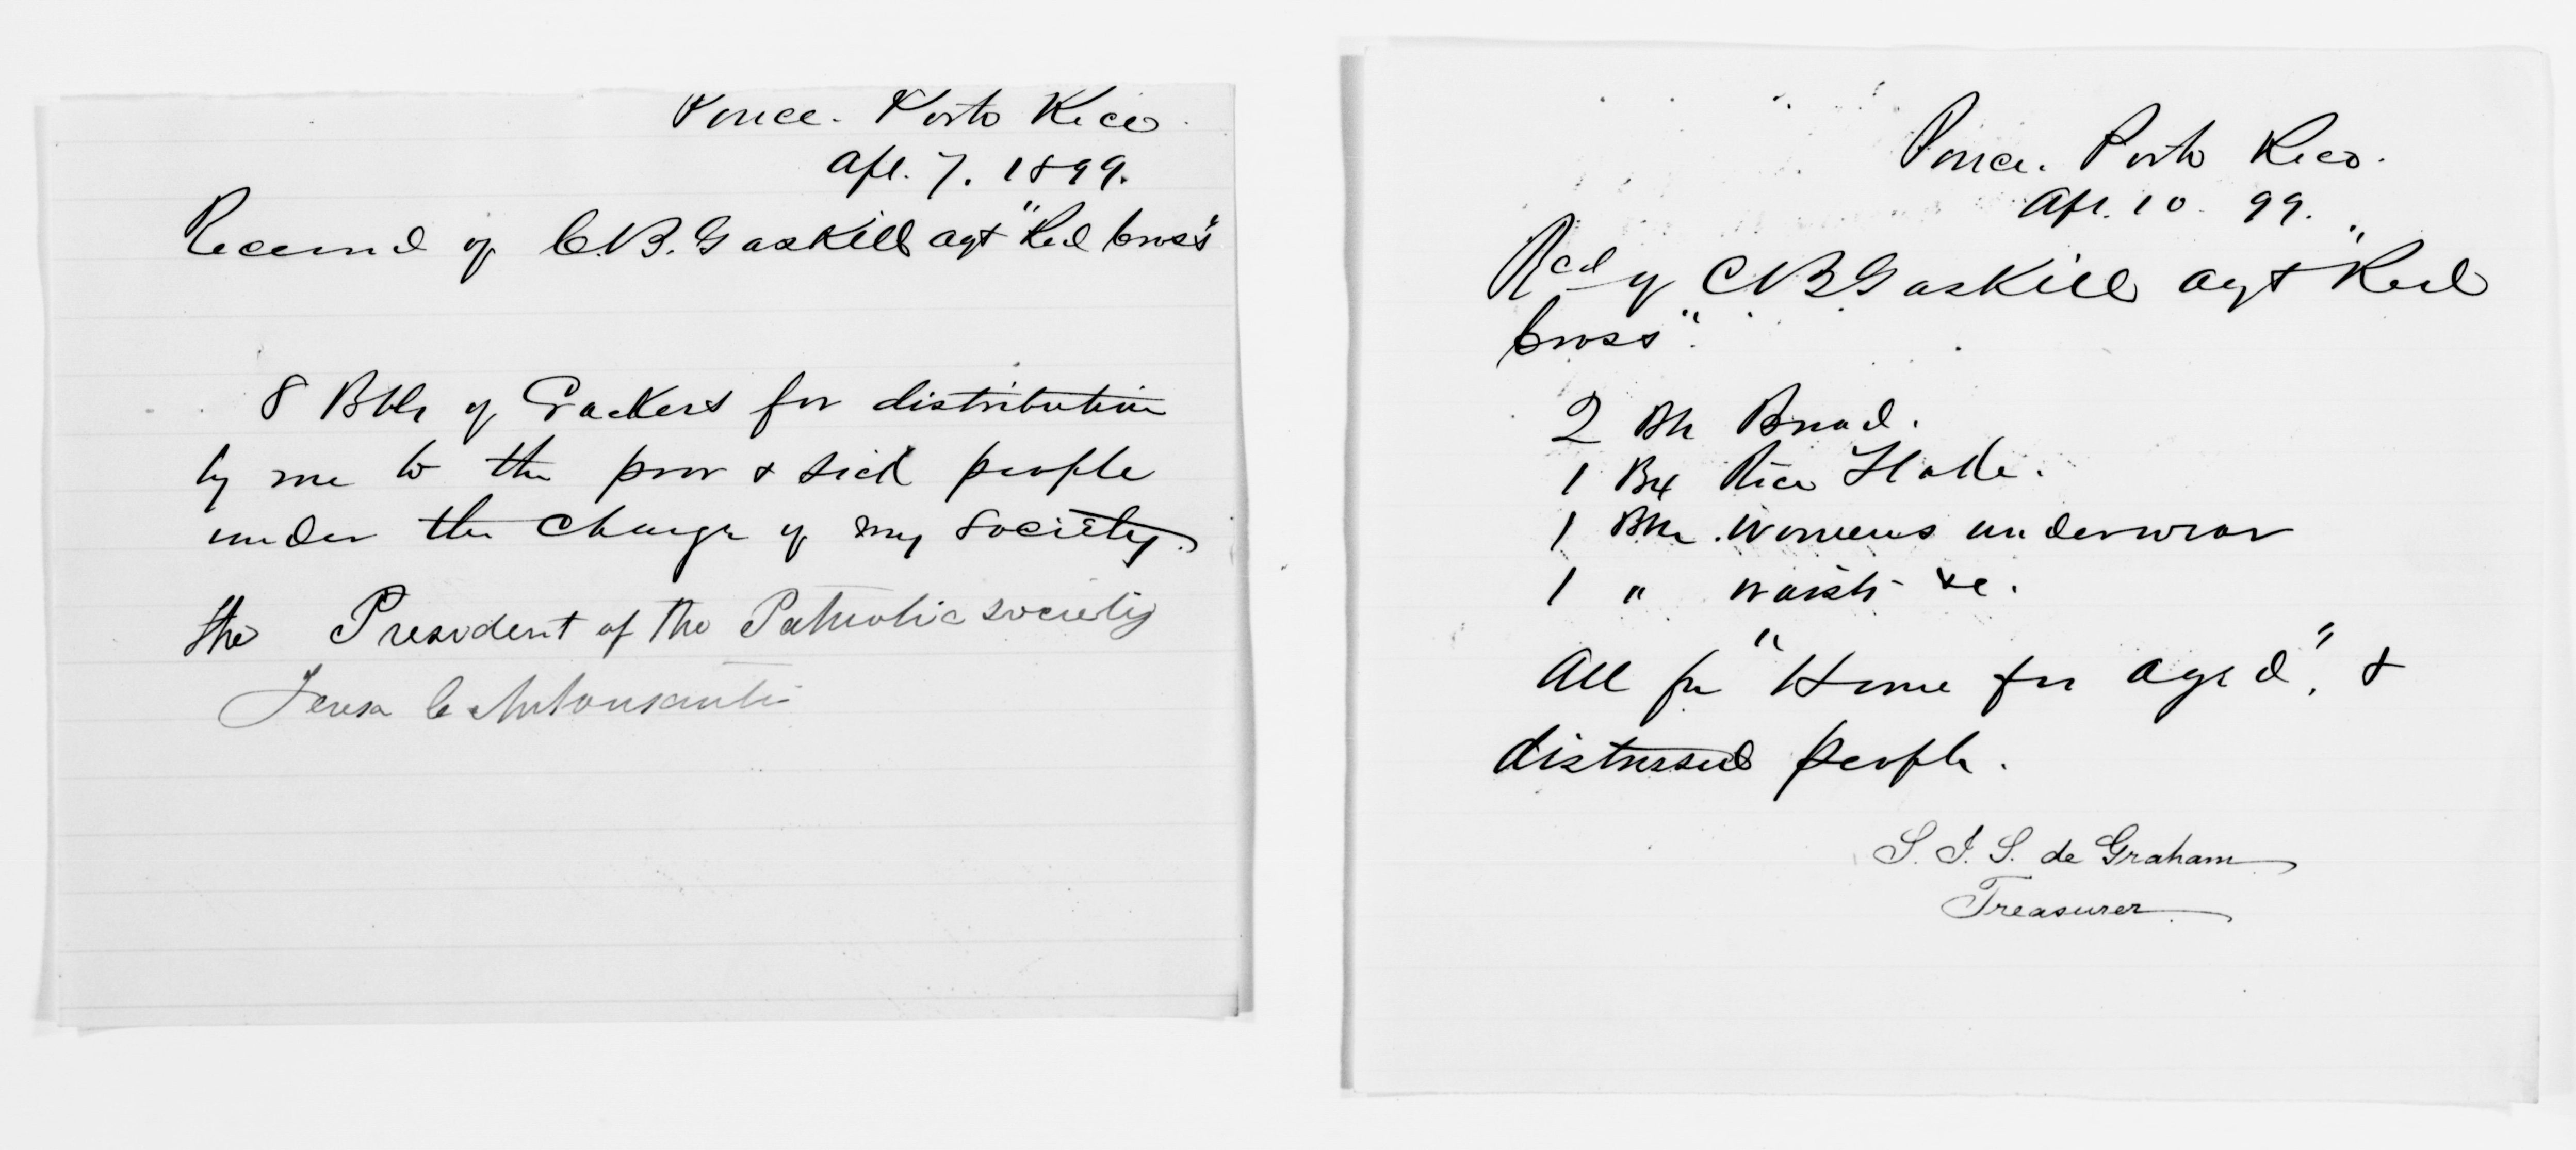 Ponce. Porto Rico.
Apl. 7. 1899.
Received of C.B. Gaskill agt "Red Cross"
8 Bbls of Crackers for distribution
by me to the poor & sick people
under the charge of my society.
the President of the Patriotic society
Ponce. Porto Rico.
Apr. 10. 99.
Rcd of C B Gaskill agt "Red
Cross".
2 Bbl Bread.
1 Bx Rice Flake.
1 Bbl. Womens underwear
1 " waists &c.
All for "Home for aged", &
distressed people.
S. I. S. de Graham
Treasurer.